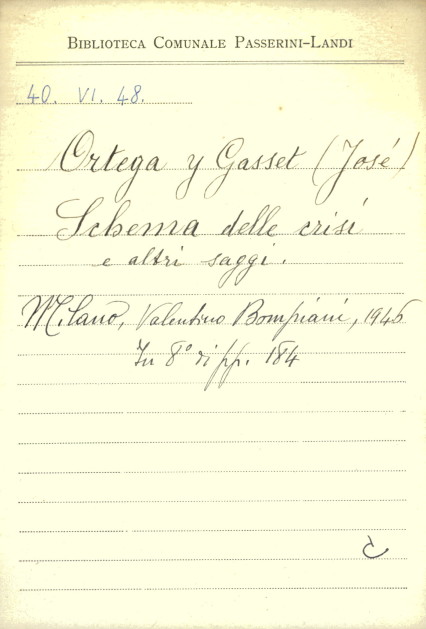 BIBLIOTECA COMUNALE PASSERINI-LANDI
40. VI. 48.
Ortega y Gasset (José)
Schema delle crisi
e altri saggi.
Milano, Valentino Bompiani, 1946
In 8° di pp. 184